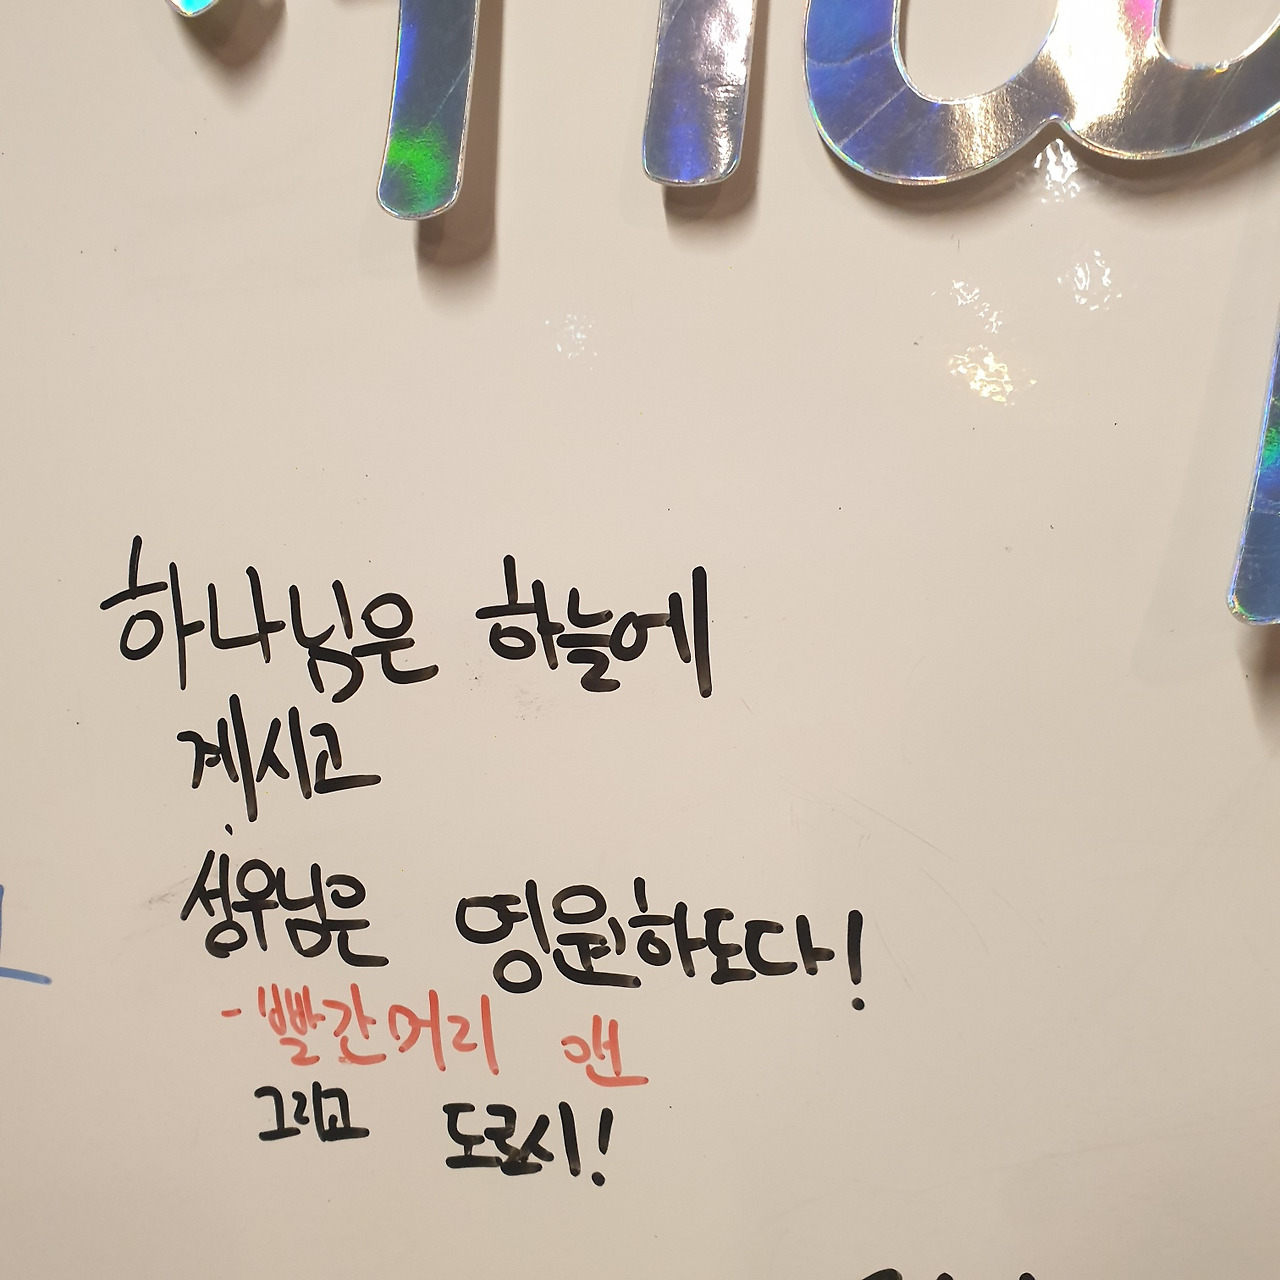 하나님은 하늘에
계시고
성우님은 영원하도다!
- 빨간머리 앤
그리고 도로시!